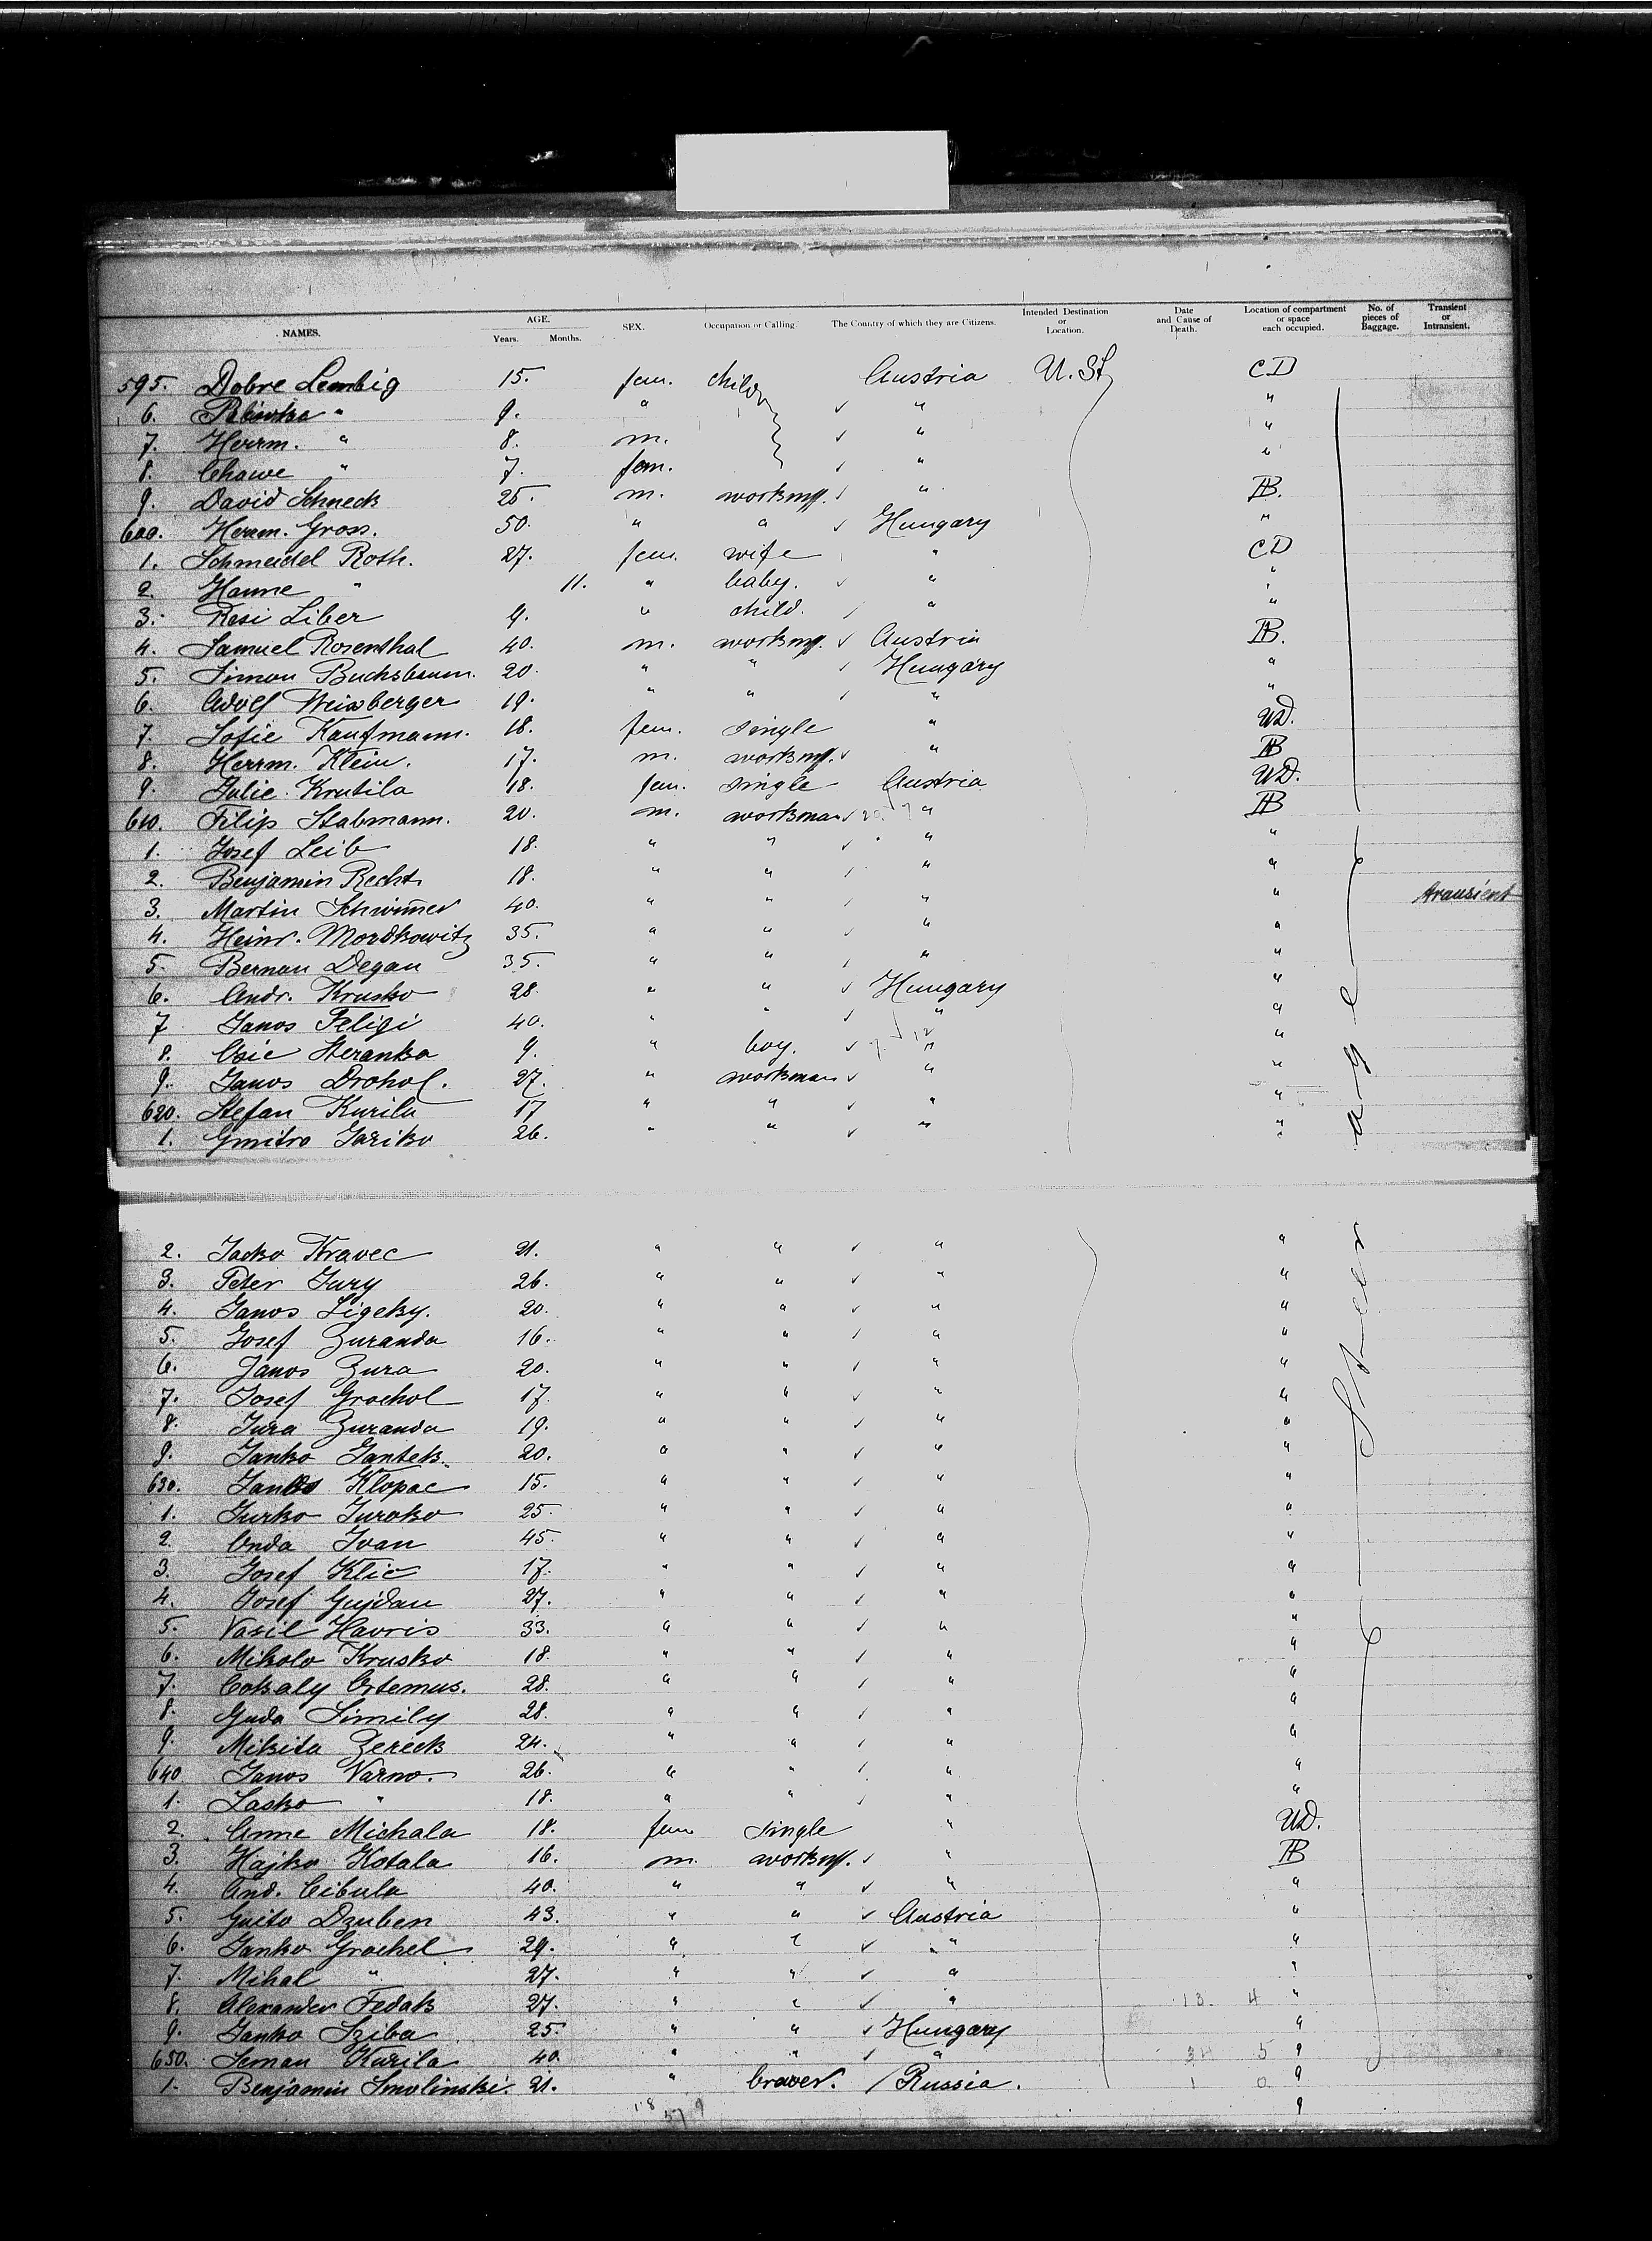 NAMES. AGE. Years. Months. SEX. Occupation or Calling. The Country of which they are Citizens. Intended Destination or Location. Date and Cause of Death. Location of compartment or space each occupied. No. of pieces of Baggage. Transient or Intransient.
595. Dobre Lembig 15. fem. child Austria U. St. CD
6. " 9. " "  "
7. Herrm. " 8. m. " "
8. Chawe " 7. fem. " "
9. David Schneck 25. m. workm. " AB.
600. Herrm. Gross. 50. " " Hungary "
1. Schmeidel Roth. 27. fem. wife " CD
2. Hanne " 11. " baby. " "
3. Resi Liber 9. " child. " "
4. Samuel Rosenthal 40. m. workm. Austria AB.
5. Simon Buchsbaum. 20. " " Hungary "
6. Adolf Weissberger 19. " " " "
7. Sofie Kaufmann. 18. fem. single " UD.
8. Herrm. Klein. 17. m. workm. " AB
9. Julie Krutila 18. fem. single Austria UD.
610. Filip Stabmann. 20. m. workman " AB
1. Josef Leib 18. " " " "
2. Benjamin Recht 18. " " " "
3. Martin Schwimer 40. " " " " transient
4. Heinr. Mordkowitz 35. " " " "
5. Bernan Degan 35. " " " "
6. Andr. Krusko 28. " " Hungary "
7. Janos Feligi 40. " " " "
8. Heranka 9. " boy. " "
9. Janos Drohol. 27. " workman " "
620. Stefan Kurila 17 " " " "
1. Gmitro Jariko 26. " " " "
2. Jacko Kravec 21. " " " "
3. Peter Jury 26. " " " "
4. Janos Ligeky. 20. " " " "
5. Josef Zuranda 16. " " " "
6. Janos Zura 20. " " " "
7. Josef Grochol 17. " " " "
8. Jura Zuranda 19. " " " "
9. Janko Jantek. 20. " " " "
630. Klopac 15. " " " "
1. Jurko Juroko 25. " " " "
2. Onda Ivan 45. " " " "
3. Josef Klic 17. " " " "
4. Josef Gujdan 27. " " " "
5. Vasil Havris 33. " " " "
6. Mikolo Krusko 18. " " " "
7. Ortemus. 28. " " " "
8. Guda Simily 28. " " " "
9. Mikita Zereck 24. " " " "
640. Janos Varno. 26. " " " "
1. Lasko " 18. " " " "
2. Anne Michala 18. fem single " UD.
3. Hajko Kotala 16. m. workm. " AB
4. And. Cibula 40. " " " "
5. Guito Dzuben 43. " " Austria "
6. Janko Grochel 29. " " " "
7. Mihal " 27. " " " "
8. Alexander Fedak 27. " " " 13. 4 "
9. Janko Sziba 25. " " Hungary "
650. Seman Kurila 40. " " " 34 5 "
1. Benjamin Smolinski. 21. " brower. Russia. 1 0 "
Steerage